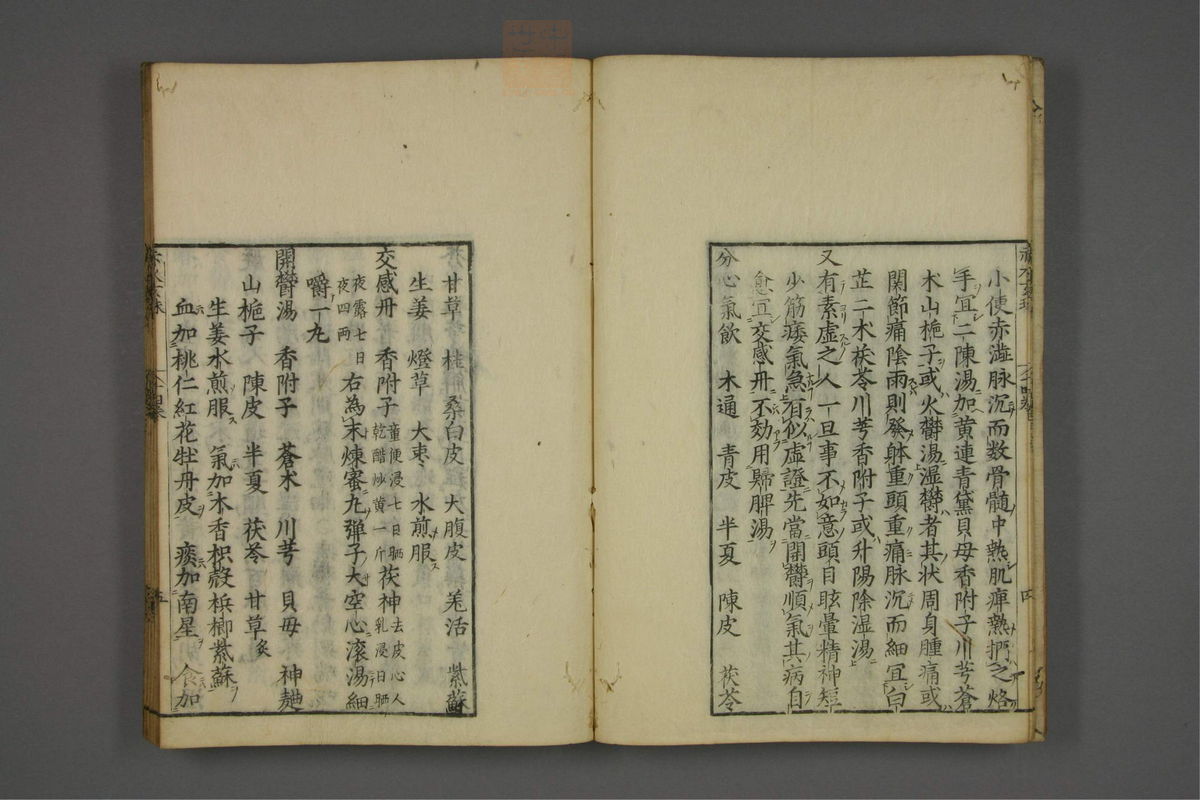 小便赤澁脉沉而数骨髓中熱肌痺熱捫之烙
手宜二陳湯加黄連青黛貝母香附子川芎蒼
木山梔子或火欝湯湿欝者其状周身腫痛或
関節痛陰雨則發躰重頭重痛脉沉而細宜白
芷二木茯苓川芎香附子或升陽除湿湯
又有素虚之人一旦事不如意頭目眩暈精神短
少筋痿氣急有似虚證先當開欝順氣其病自
愈宜交感丹不効用歸脾湯
分心氣飲 木通 青皮 半夏 陳皮 茯苓
甘草 桂 桑白皮 大腹皮 羌活 紫蘇
生姜 燈草 大枣 水煎服
交感丹 香附子 童便浸七日晒乾醋炒黄一斤 茯神 去皮心人乳浸日晒
夜露七日夜四两 右為末煉蜜丸弾子大空心滚湯細
嚼一丸
開欝湯 香附子 蒼术 川芎 貝母 神麯
山梔子 陳皮 半夏 茯苓 甘草炙
生姜水煎服 氣加木香枳殻梹榔紫蘇
血加桃仁紅花牡丹皮 痰加南星 食加
四
五